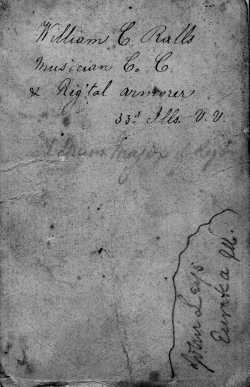 William C. Ralls
Musician Co. C.
& Rigital armorer
33d Ills. V. V.
Drum Major
John Lays
Eureka Ill.